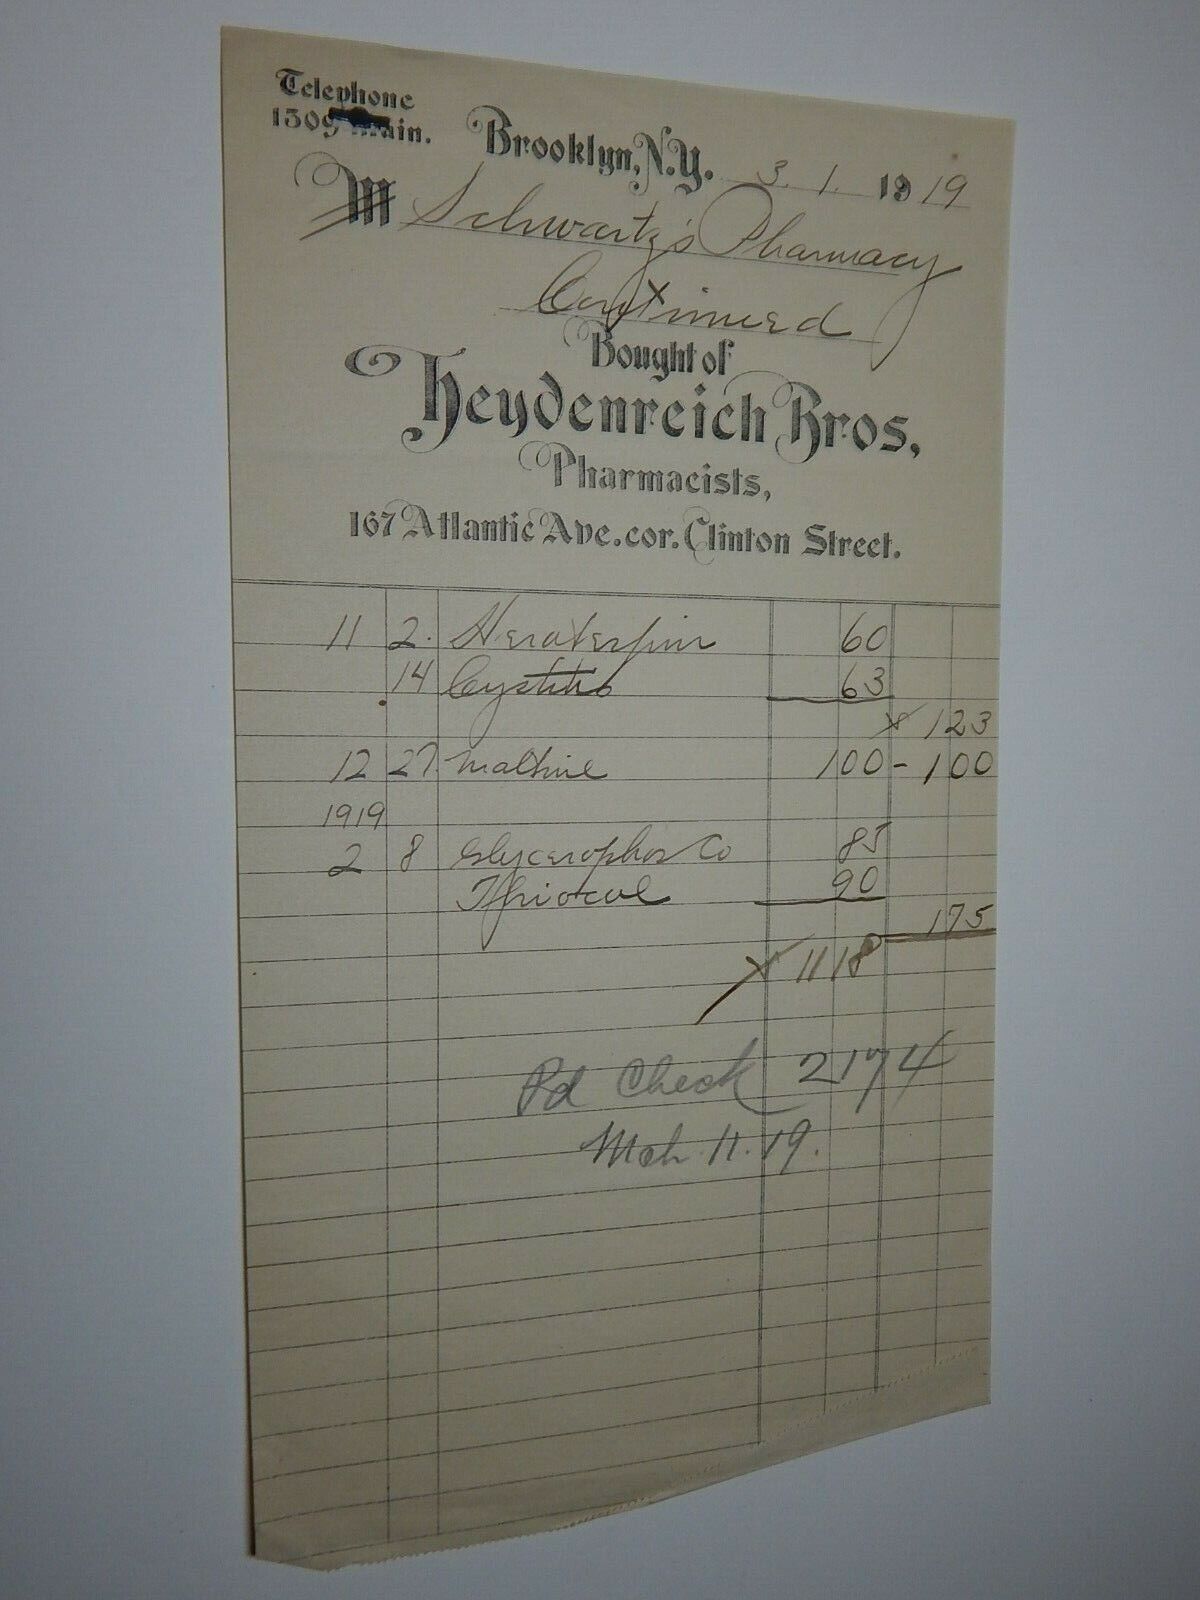 Telephone
1309 Main.
Brooklyn, N.Y. 3. 1. 1919
M Schwartz's Pharmacy
Continued
Bought of
Heydenreich Bros,
Pharmacists,
167 Atlantic Ave. cor. Clinton Street.
11 2. 60
14 Cystitis 63
x 123
12 27 Maltine 100 - 100
1919
2 8 Glycerophos Co 85
Thiocol 90
175
x 11 18
Pd Check 2174
Mch 11. 19.